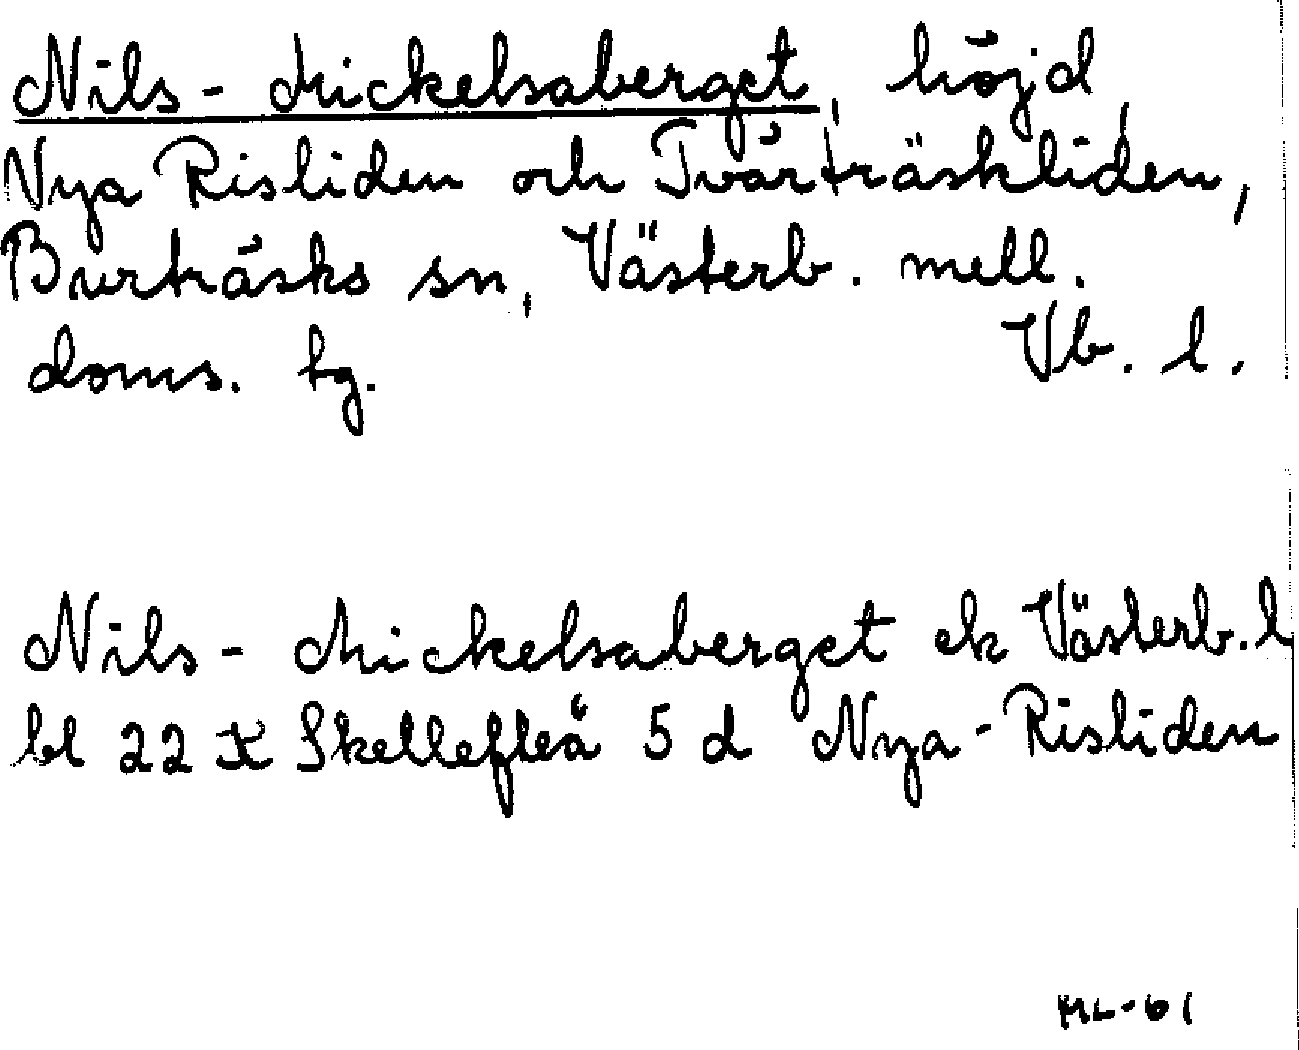 Nils-Mickelsaberget, höjd,
Nya Risliden och Tvärträskliden,
Burträsks sn, Västerb. mell.
doms. tg. Vb. l.
Nils-Mickelsaberget ek Västerb. l
bl 22 K Skellefteå 5 d Nya-Risliden
ML-61